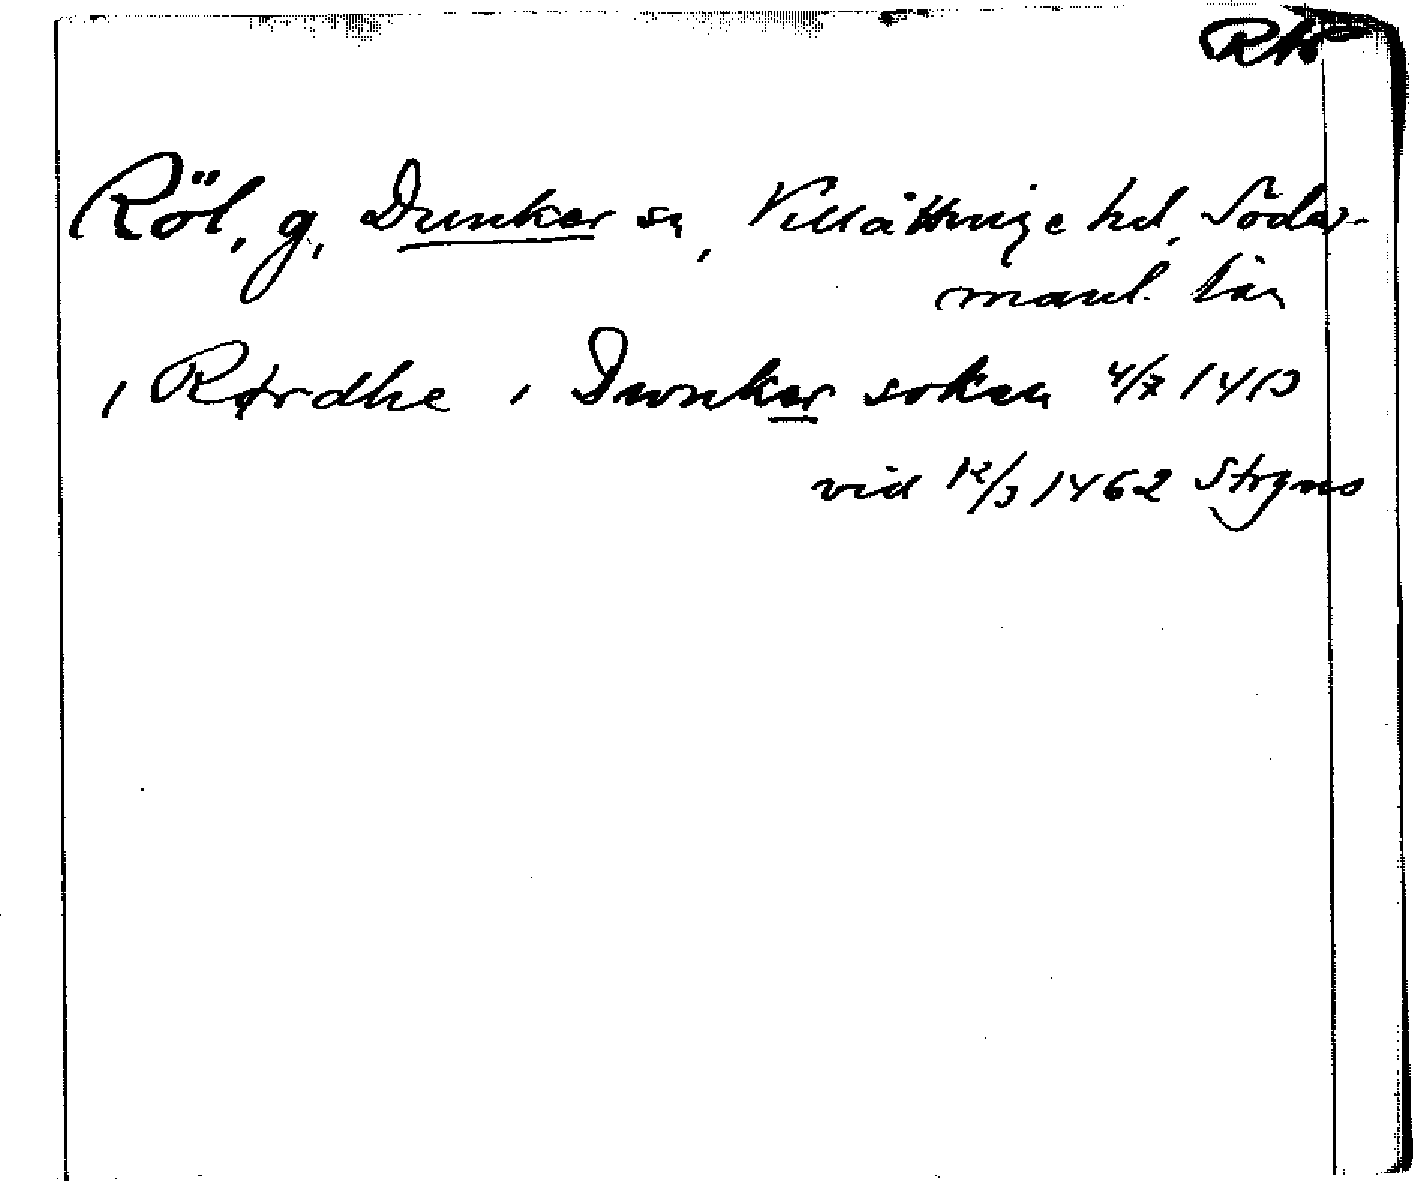 Röl, g, Dunker sn, Villåttinge hd, Söder-
manl. län
i Rørdhe i Dwnker soken 4/7 1413
vid 12/3 1462 Strgns